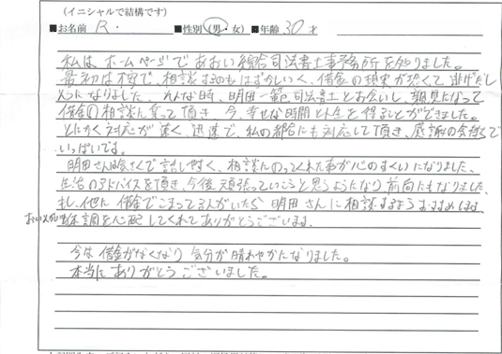 (イニシャルで結構です)
■お名前 R. ■性別(男・女) ■年齢 30才
私は、ホームページであおい総合司法書士事務所を知りました。
最初は不安で、相談するのもはずかしいく、借金の現実が恐くて逃げだし
そうになりました。そんな時、明田一範司法書士とお会いし、親身になって
借金の相談に乗って頂き、今、幸せな時間と人生を得ることができました。
とにかく対応が良く、迅速で、私の都合にも対応して頂き、感謝の気持で
いっぱいです。
明田さんは気さくで話しやすく、相談にのってくれた事が心のすくいになりました、
生活のアドバイスを頂き、今後頑張っていこうと思うようになり前向になりました、
もし、他に借金でこまってる人がいたら明田さんに相談するようおすすめします、
体調を心配してくれてありがとうございます、
今は借金がなくなり気分が晴れやかになりました。
本当にありがとうございました。